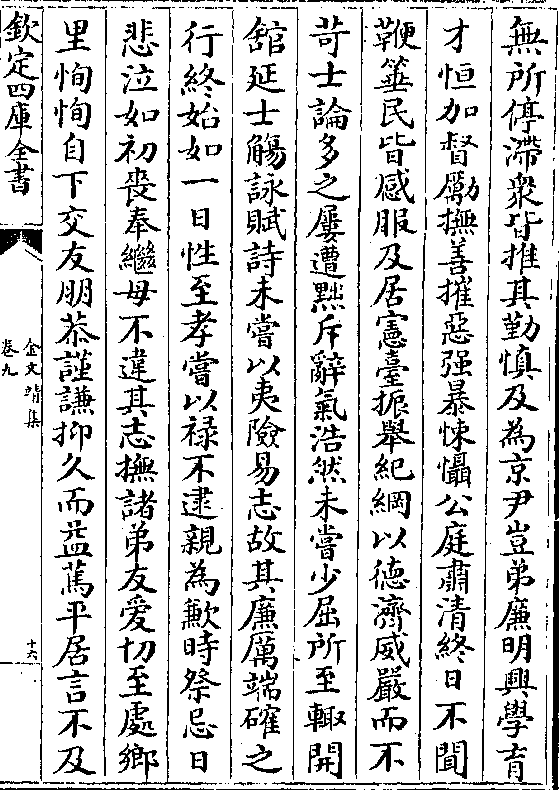 無所停滯衆皆推其勤慎及為京尹豈弟廉明興學育
才恒加督勵撫善摧惡强暴悚懾公庭肅清終日不聞
鞭箠民皆感服及居憲臺振舉紀綱以德濟威嚴而不
苛士論多之屢遭黜斥辭氣浩然未嘗少屈所至輙開
舘延士觴詠賦詩未嘗以夷險易志故其廉厲端確之
行終始如一日性至孝嘗以禄不逮親為歉時祭忌日
悲泣如初喪奉繼母不違其志撫諸弟友愛切至處鄉
里恂恂自下交友朋恭謹謙抑久而益篤平居言不及
欽定四庫全書
金文靖集
卷九
十六